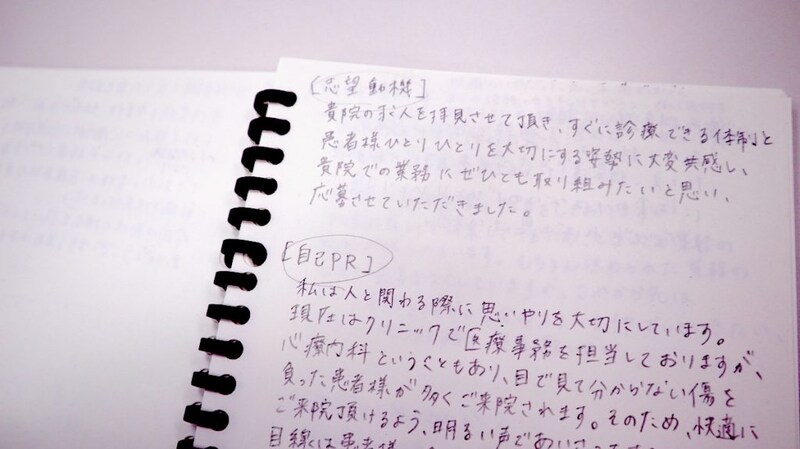 [志望動機]
貴院の求人を拝見させて頂き、すぐに診療できる体制と
患者様ひとりひとりを大切にする姿勢に大変共感し、
貴院での業務にぜひとも取り組みたいと思い、
応募させていただきました。
[自己PR]
私は人と関わる際に思いやりを大切にしています。
現在はクリニックで医療事務を担当しておりますが、
心療内科ということもあり、目で見て分からない傷を
負った患者様が多くご来院されます。そのため、快適に
ご来院頂けるよう、明るい声であいさつ
目線は患者様